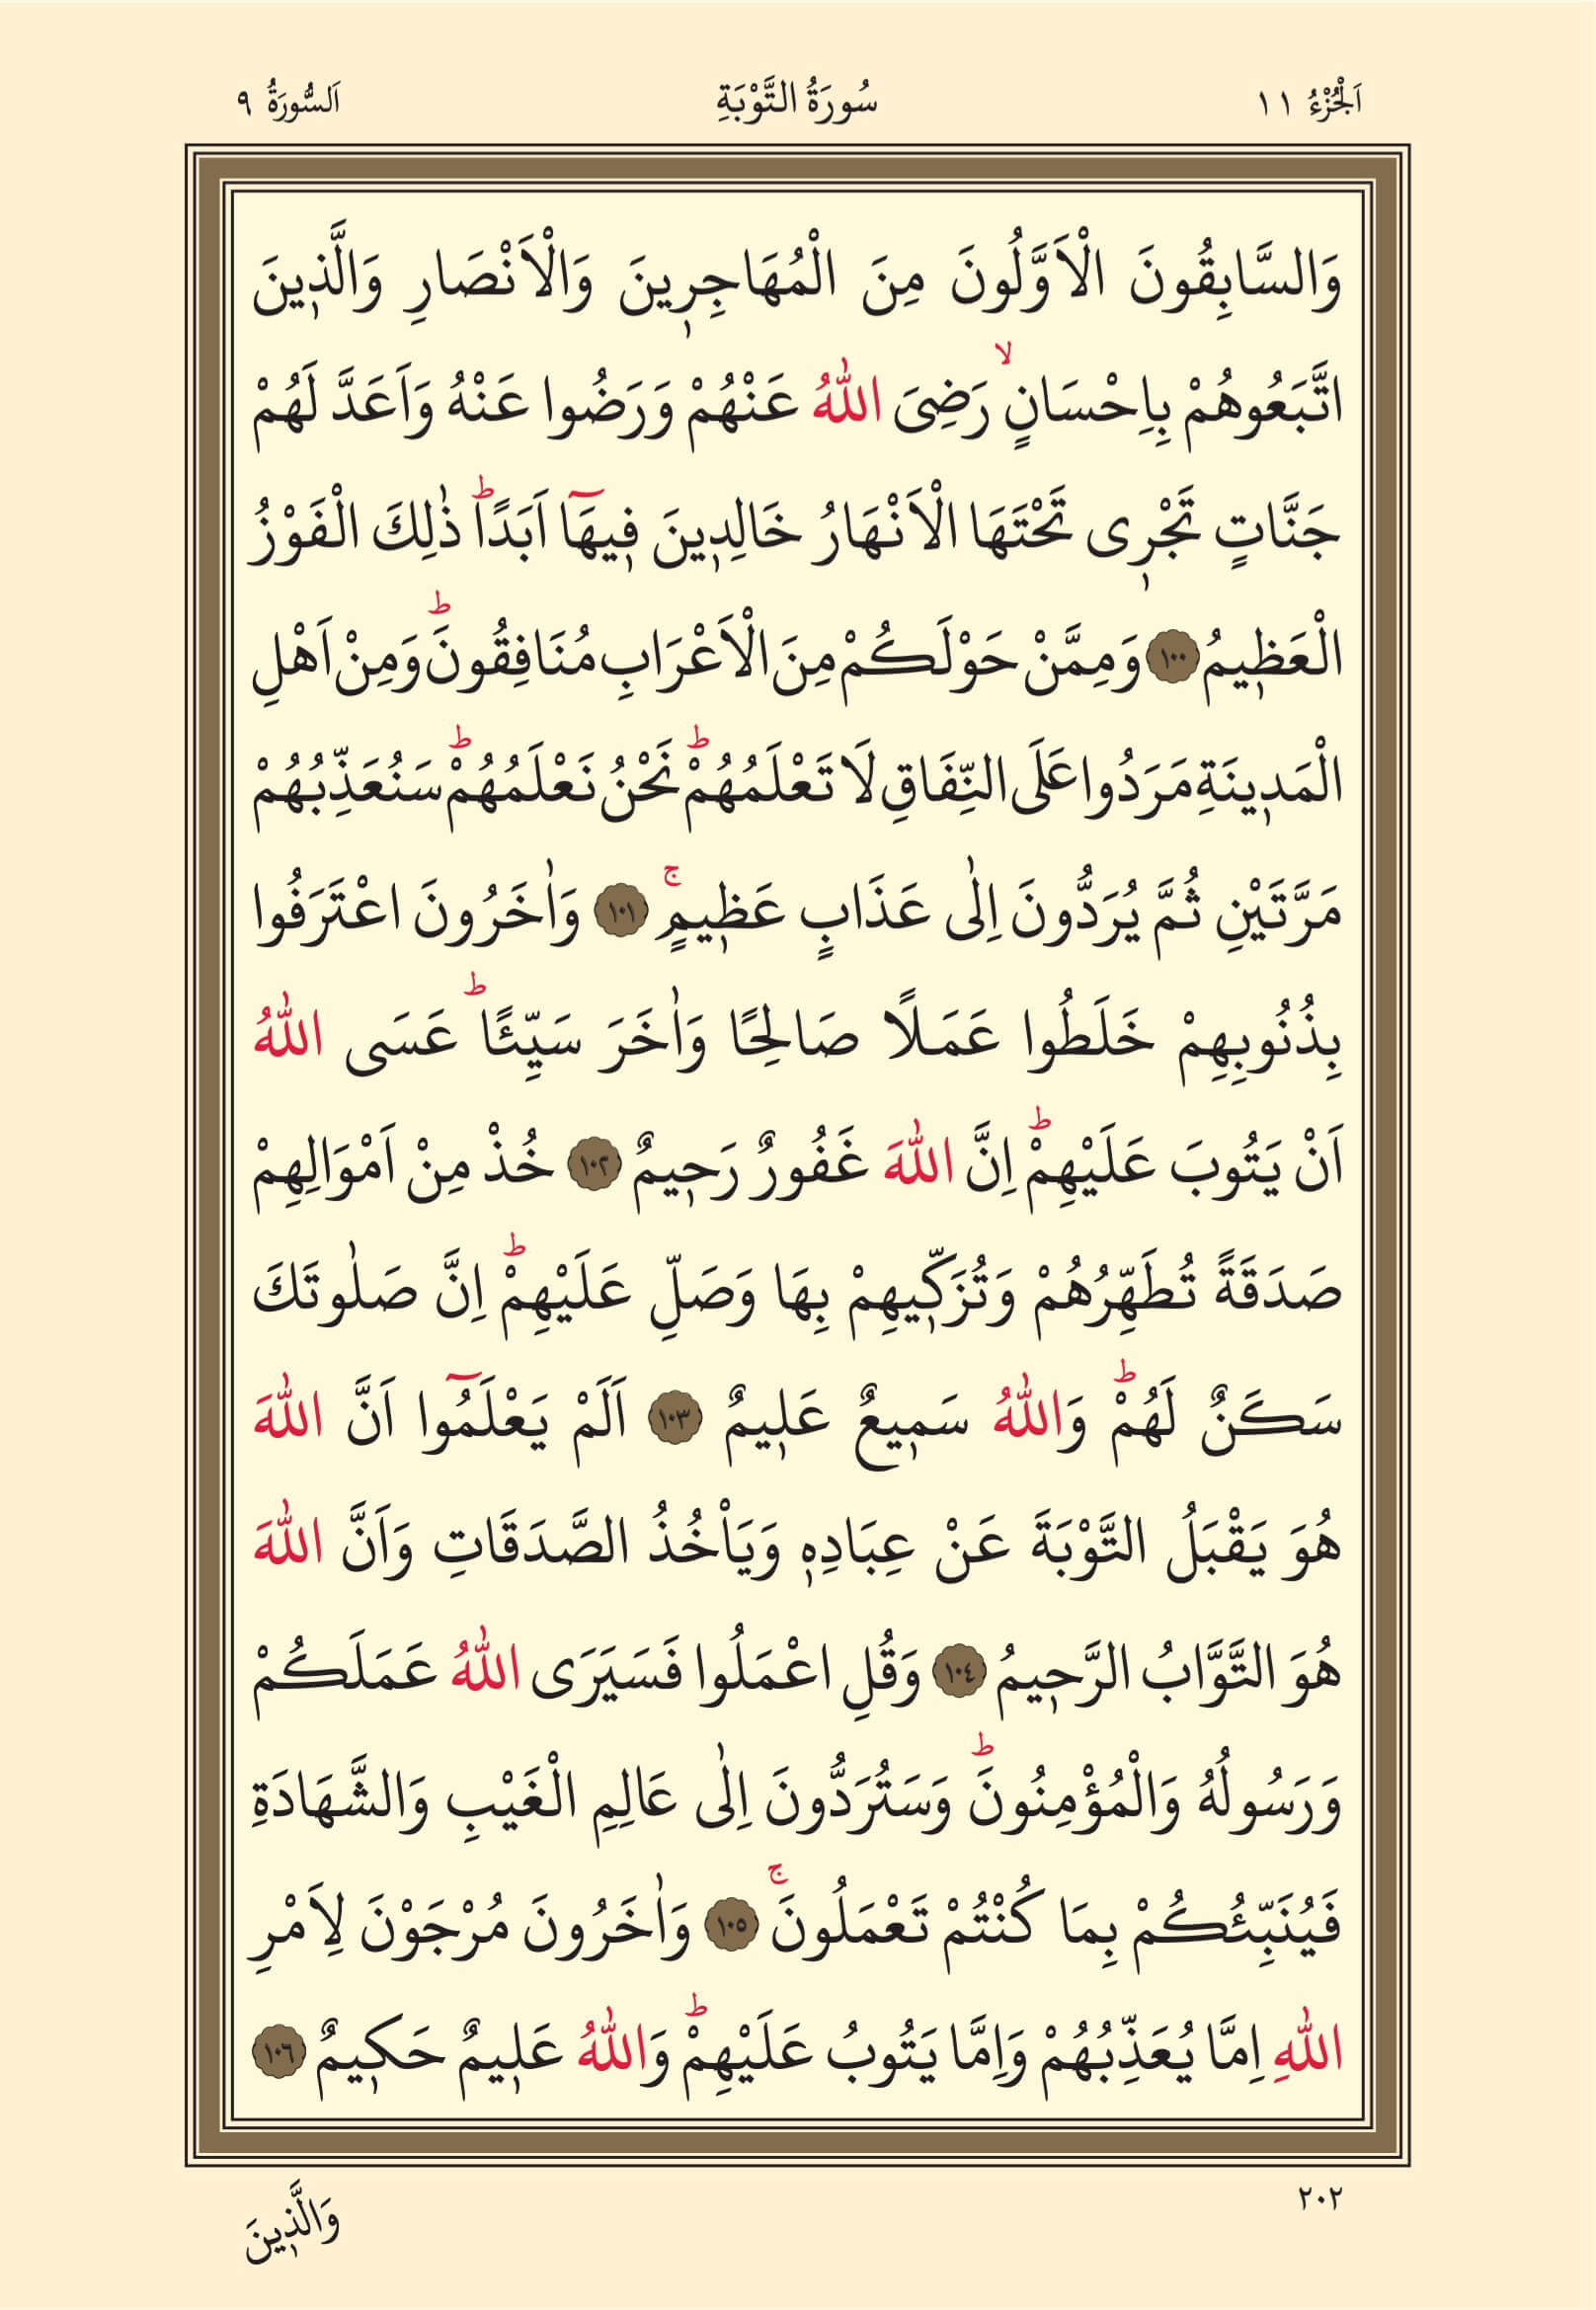 اَلْجُزْءُ ١١
سُورَةُ التَّوْبَةِ
اَلسُّورَةُ ٩
وَالسَّابِقُونَ الْاَوَّلُونَ مِنَ الْمُهَاجِرٖينَ وَالْاَنْصَارِ وَالَّذٖينَ
اتَّبَعُوهُمْ بِاِحْسَانٍۙ رَضِىَ اللّٰهُ عَنْهُمْ وَرَضُوا عَنْهُ وَاَعَدَّ لَهُمْ
جَنَّاتٍ تَجْرٖى تَحْتَهَا الْاَنْهَارُ خَالِدٖينَ فٖيهَٓا اَبَدًاؕ ذٰلِكَ الْفَوْزُ
الْعَظٖيمُ ١٠٠ وَمِمَّنْ حَوْلَكُمْ مِنَ الْاَعْرَابِ مُنَافِقُونَؕ وَمِنْ اَهْلِ
الْمَدٖينَةِ مَرَدُوا عَلَى النِّفَاقِ لَا تَعْلَمُهُمْؕ نَحْنُ نَعْلَمُهُمْؕ سَنُعَذِّبُهُمْ
مَرَّتَيْنِ ثُمَّ يُرَدُّونَ اِلٰى عَذَابٍ عَظٖيمٍۚ ١٠١ وَاٰخَرُونَ اعْتَرَفُوا
بِذُنُوبِهِمْ خَلَطُوا عَمَلًا صَالِحًا وَاٰخَرَ سَيِّئًاؕ عَسَى اللّٰهُ
اَنْ يَتُوبَ عَلَيْهِمْؕ اِنَّ اللّٰهَ غَفُورٌ رَحٖيمٌ ١٠٢ خُذْ مِنْ اَمْوَالِهِمْ
صَدَقَةً تُطَهِّرُهُمْ وَتُزَكّٖيهِمْ بِهَا وَصَلِّ عَلَيْهِمْؕ اِنَّ صَلٰوتَكَ
سَكَنٌ لَهُمْؕ وَاللّٰهُ سَمٖيعٌ عَلٖيمٌ ١٠٣ اَلَمْ يَعْلَمُٓوا اَنَّ اللّٰهَ
هُوَ يَقْبَلُ التَّوْبَةَ عَنْ عِبَادِهٖ وَيَاْخُذُ الصَّدَقَاتِ وَاَنَّ اللّٰهَ
هُوَ التَّوَّابُ الرَّحٖيمُ ١٠٤ وَقُلِ اعْمَلُوا فَسَيَرَى اللّٰهُ عَمَلَكُمْ
وَرَسُولُهُ وَالْمُؤْمِنُونَؕ وَسَتُرَدُّونَ اِلٰى عَالِمِ الْغَيْبِ وَالشَّهَادَةِ
فَيُنَبِّئُكُمْ بِمَا كُنْتُمْ تَعْمَلُونَۚ ١٠٥ وَاٰخَرُونَ مُرْجَوْنَ لِاَمْرِ
اللّٰهِ اِمَّا يُعَذِّبُهُمْ وَاِمَّا يَتُوبُ عَلَيْهِمْؕ وَاللّٰهُ عَلٖيمٌ حَكٖيمٌ ١٠٦
٢٠٢
وَالَّذٖينَ